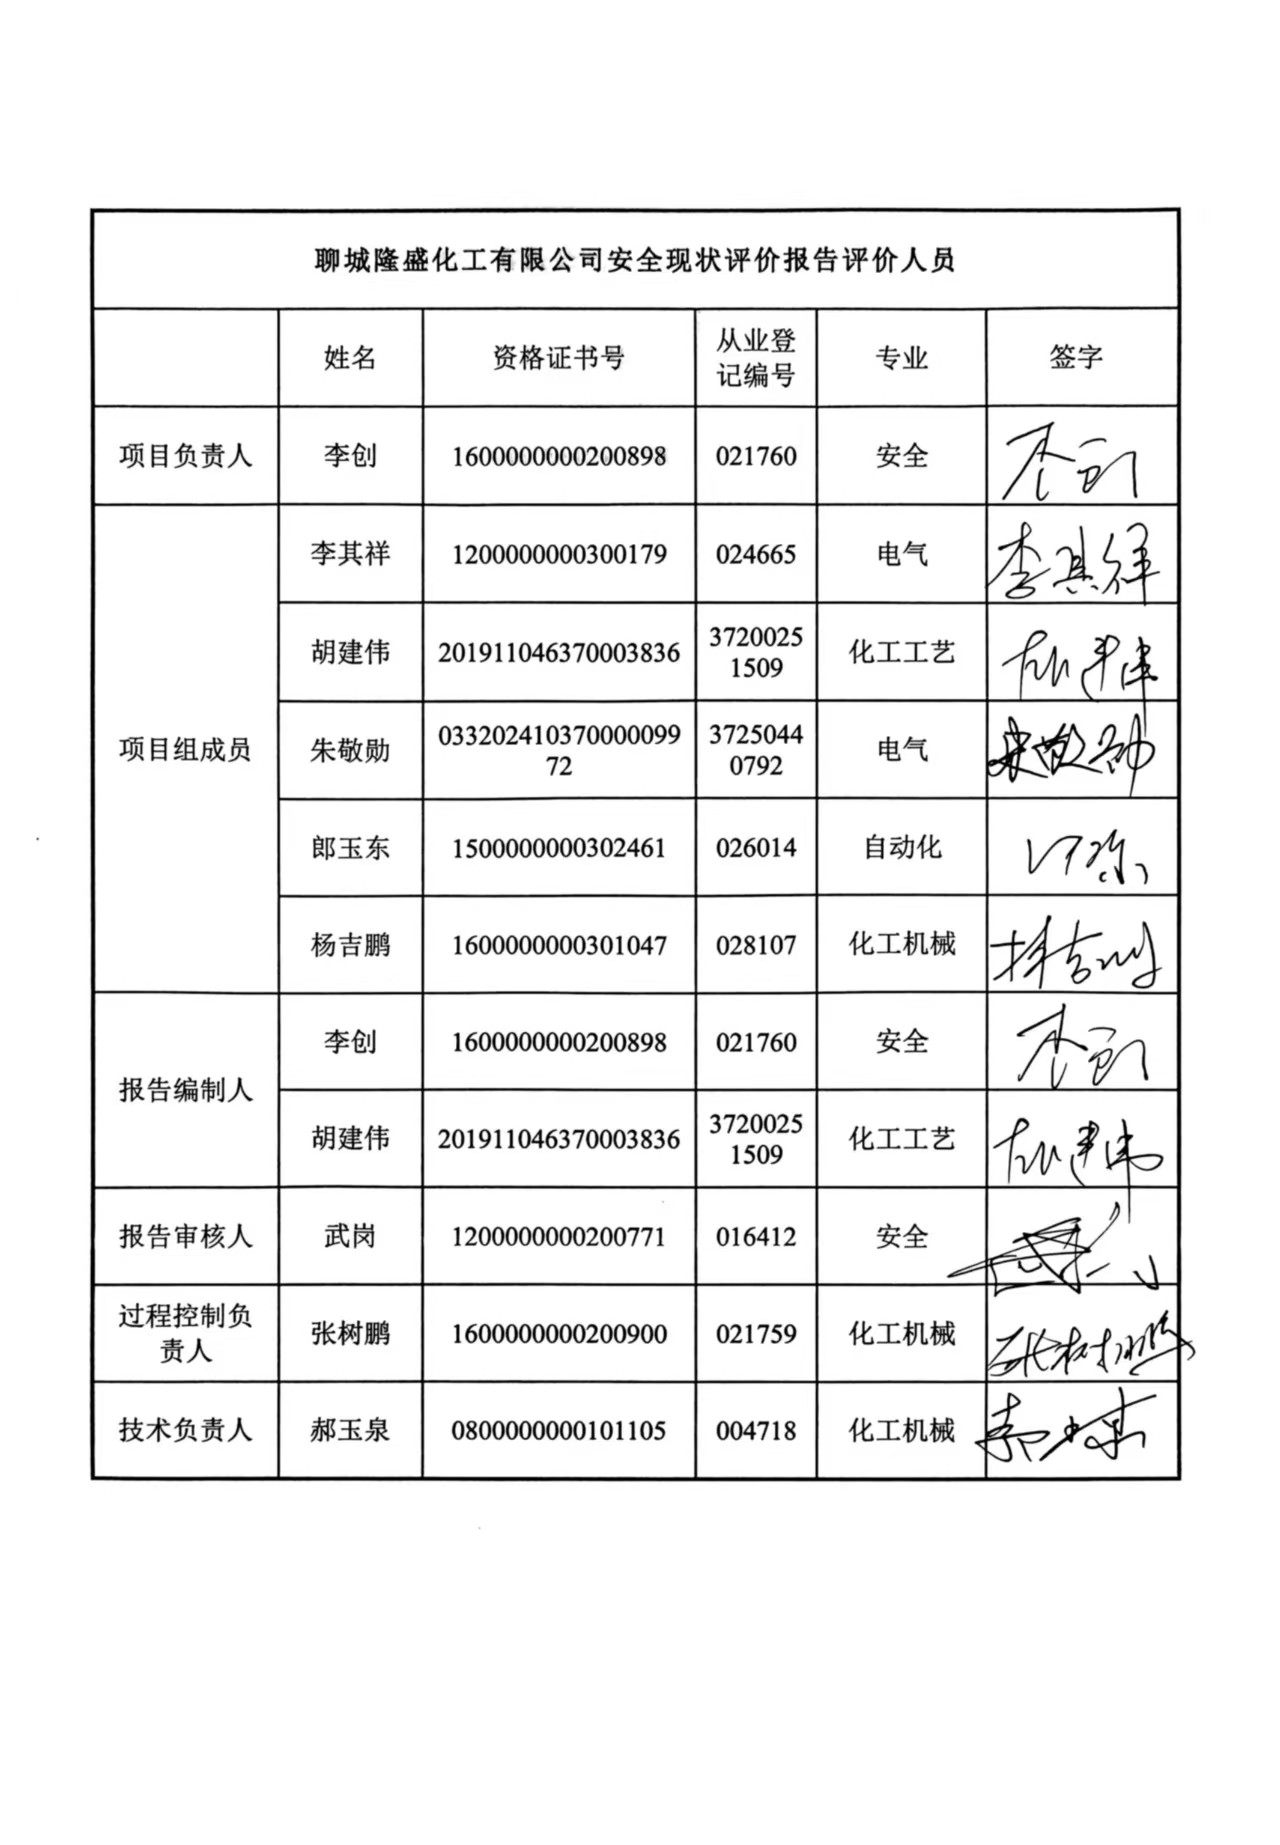 聊城隆盛化工有限公司安全现状评价报告评价人员
姓名 资格证书号 从业登记编号 专业 签字
项目负责人 李创 1600000000200898 021760 安全 李创
项目组成员 李其祥 1200000000300179 024665 电气 李其祥
胡建伟 201911046370003836 37200251509 化工工艺 胡建伟
朱敬勋 03320241037000009972 37250440792 电气 朱敬勋
郎玉东 1500000000302461 026014 自动化
杨吉鹏 1600000000301047 028107 化工机械 杨吉鹏
报告编制人 李创 1600000000200898 021760 安全 李创
胡建伟 201911046370003836 37200251509 化工工艺 胡建伟
报告审核人 武岗 1200000000200771 016412 安全
过程控制负责人 张树鹏 1600000000200900 021759 化工机械 张树鹏
技术负责人 郝玉泉 0800000000101105 004718 化工机械 郝玉泉